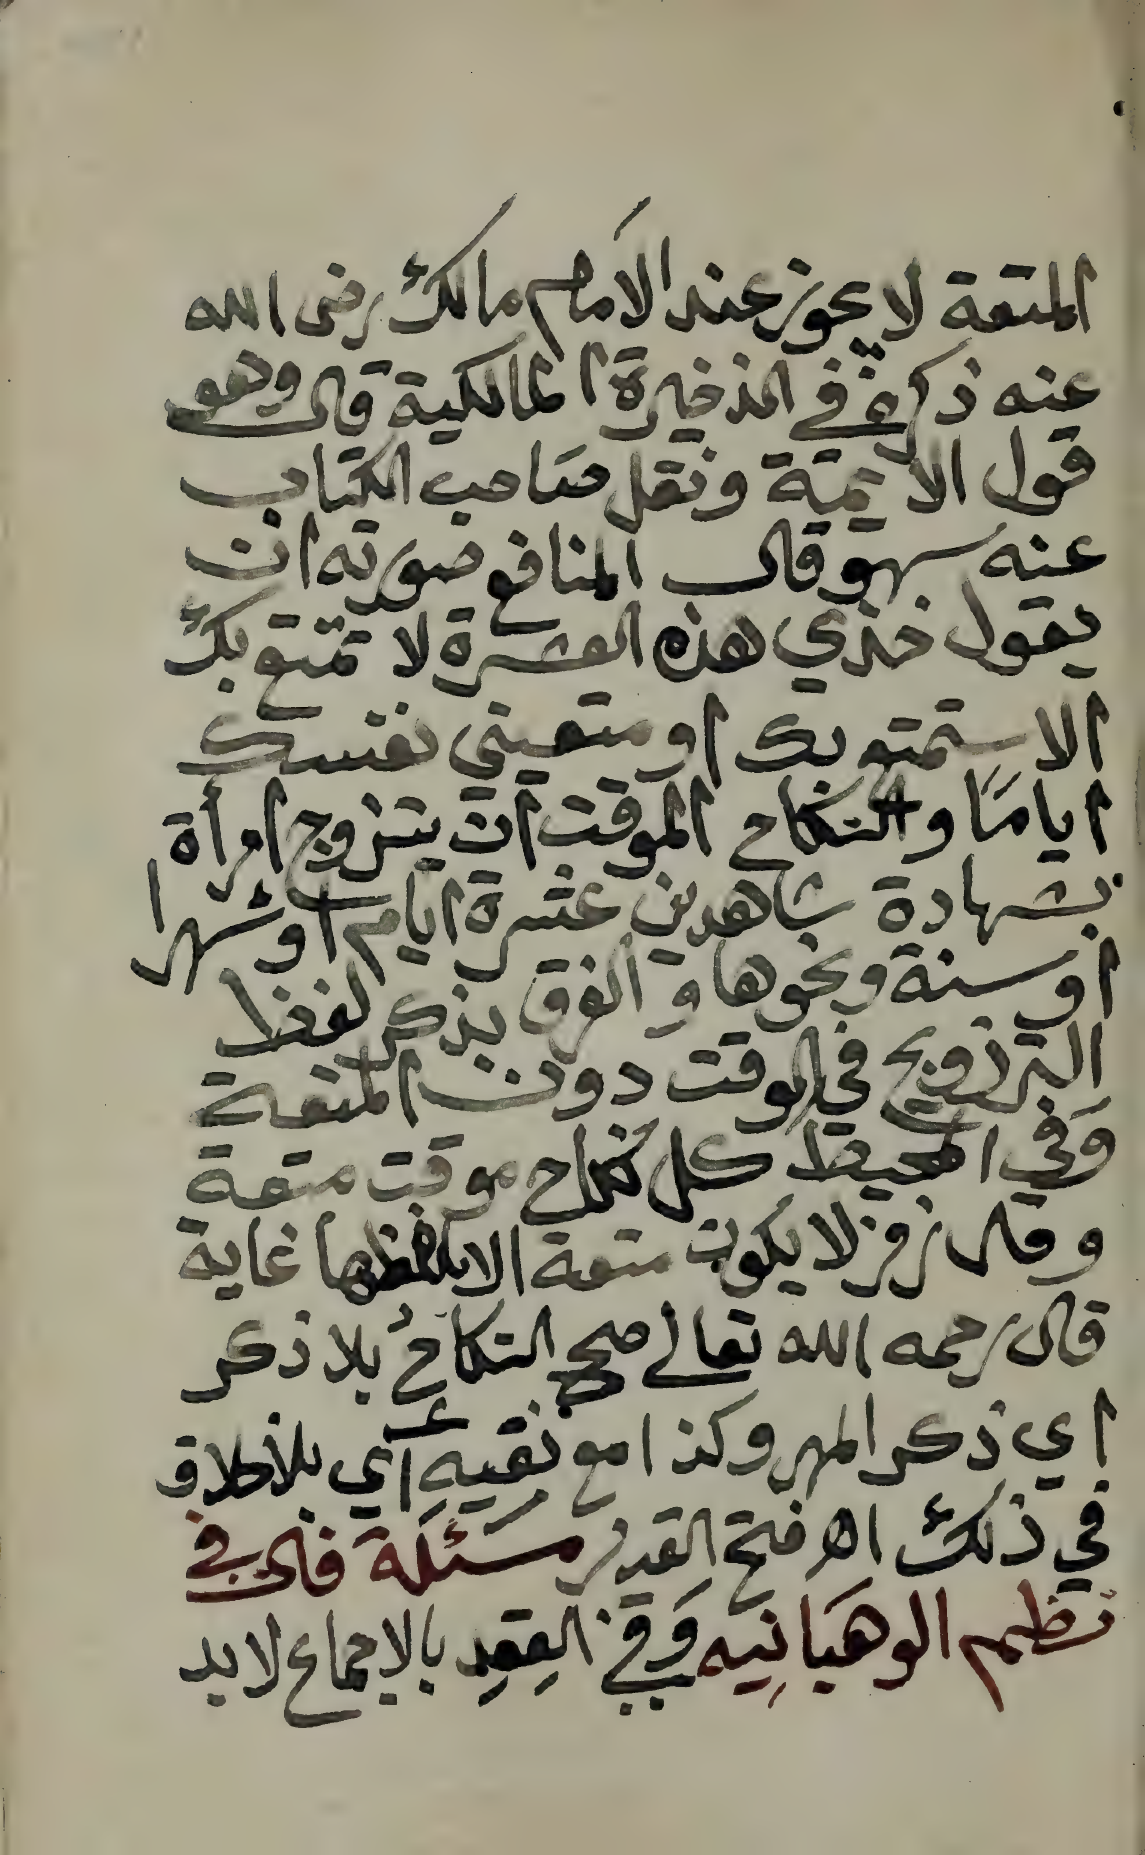 المتعة لا يجوز عند الامام مالك رضى الله
عنه ذكره في الذخيرة المالكية قال وهو
قول الائمة ونقل صاحب الكتاب
عنه سهو قال المنافع صورته ان
يقول خذي هذه العشرة لا تمتع بك
الاستمتع بك او متعيني نفسك
اياما والنكاح الموقت ان يتزوج امرأة
بشهادة شاهدين عشرة ايام او شهرا
او سنة ونحوها والفرق بذكر لفظ
التزويج في الوقت دون المتعة
وَفي المحيط كل نكاح موقت متعة
وقال زفر لا يكون متعة الا بلفظها غاية
قال رحمه الله تعالى صح النكاحُ بلا ذكر
اي ذكر المهر وكذا مع نفيه أي بلا خلاف
في ذلك اه فتح القدير مسئلة قال في
نظم الوهبَانِيه وَفي العقِدِ بالاجماع لا بد